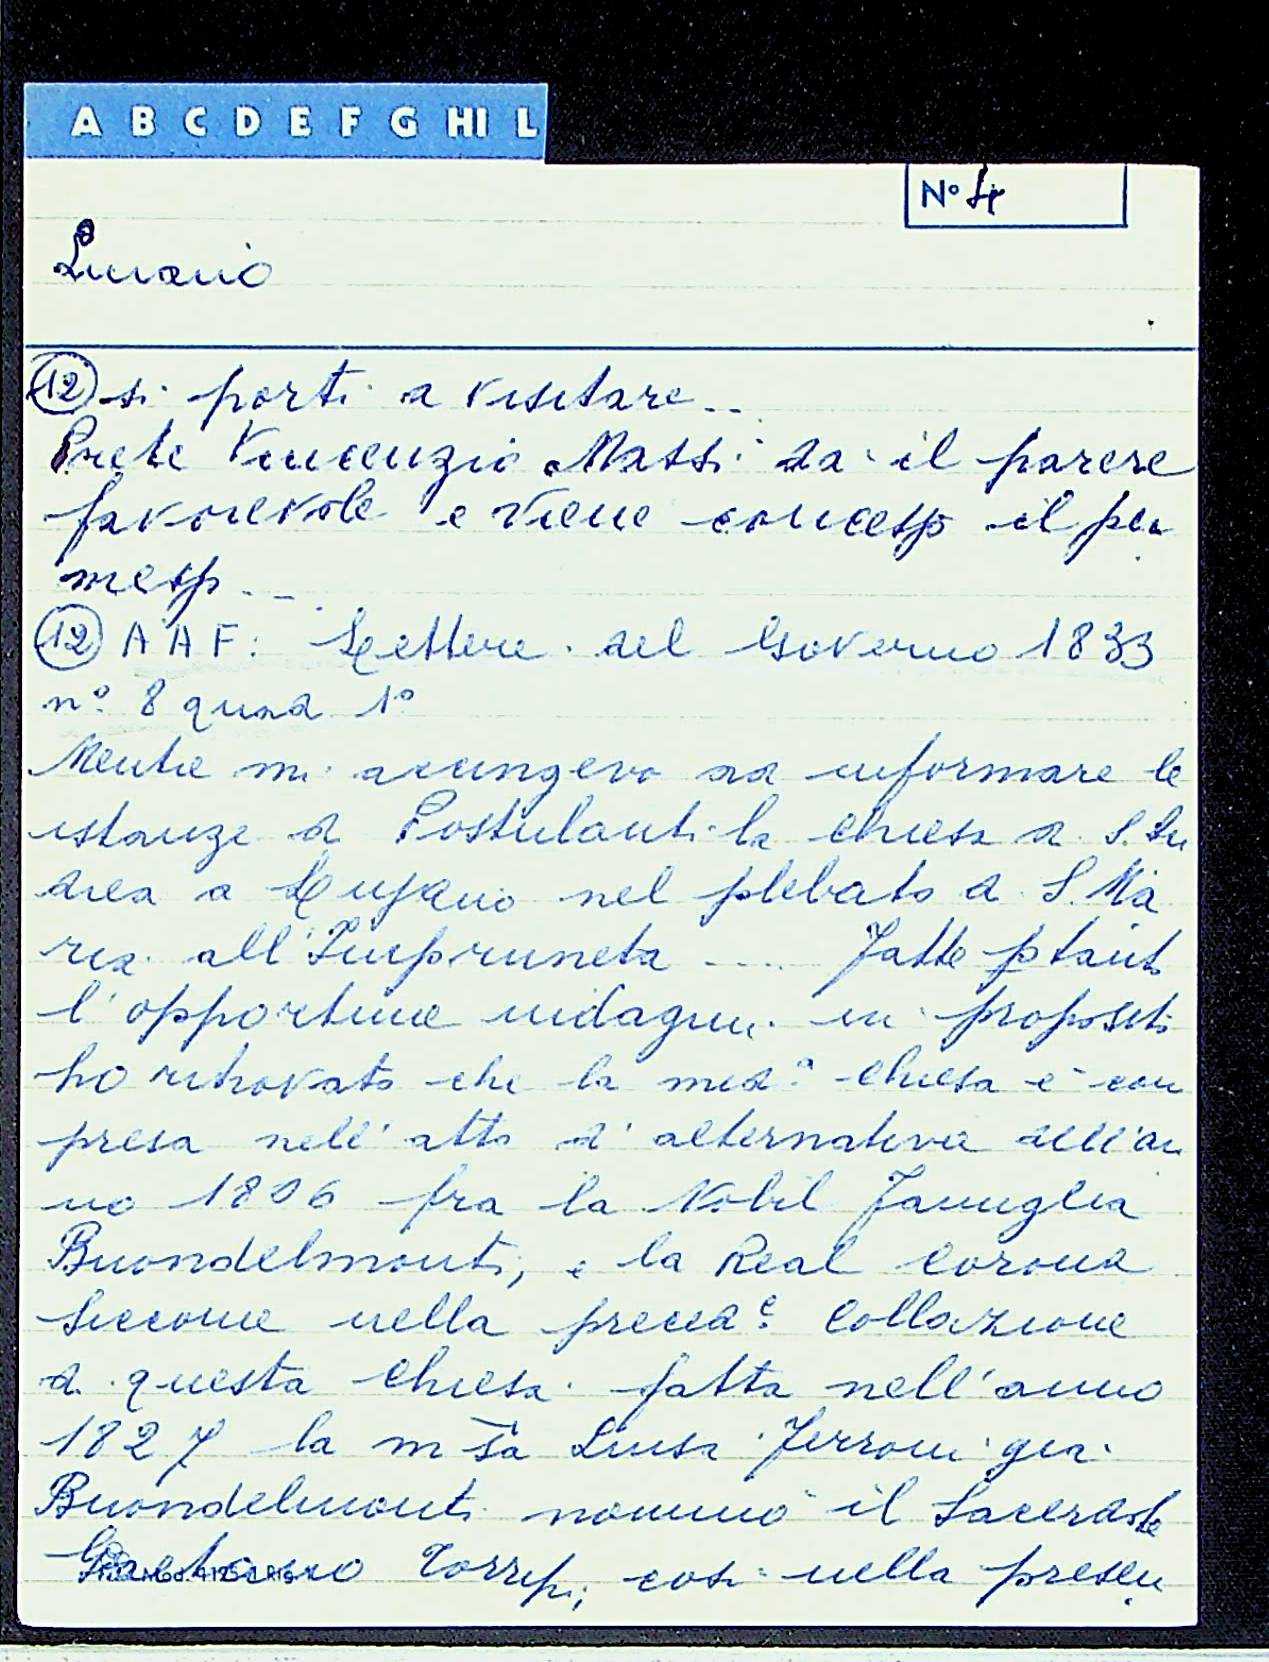 A B C D E F G HI L
N° 4
Luiano
(12) si porti a visitare ..
Prete Vincenzio Massi da il parere
favorevole e viene concesso il per
messo ...
(12) A A F: Lettere del Governo 1833
n° 8 quad 1°
Mentre mi accingevo ad informare le
istanze d Postulanti la chiesa d S. An
drea a Lujano nel plebato d S. Ma
ria all'Impruneta .... Fatte ptanto
l'opportune indagini in proposito
ho ritrovato che la med.a chiesa e com
presa nell'atto d'alternativa dell'an
no 1806 fra la Nobil Famiglia
Buondelmonti, e la Real Corona
Siccome nella preced.e Collazione
d questa chiesa fatta nell'anno
1827 la m sa Luisa Ferroni gia
Buondelmonti nominò il Sacerdote
Gaetano Torrsi, così nella presen